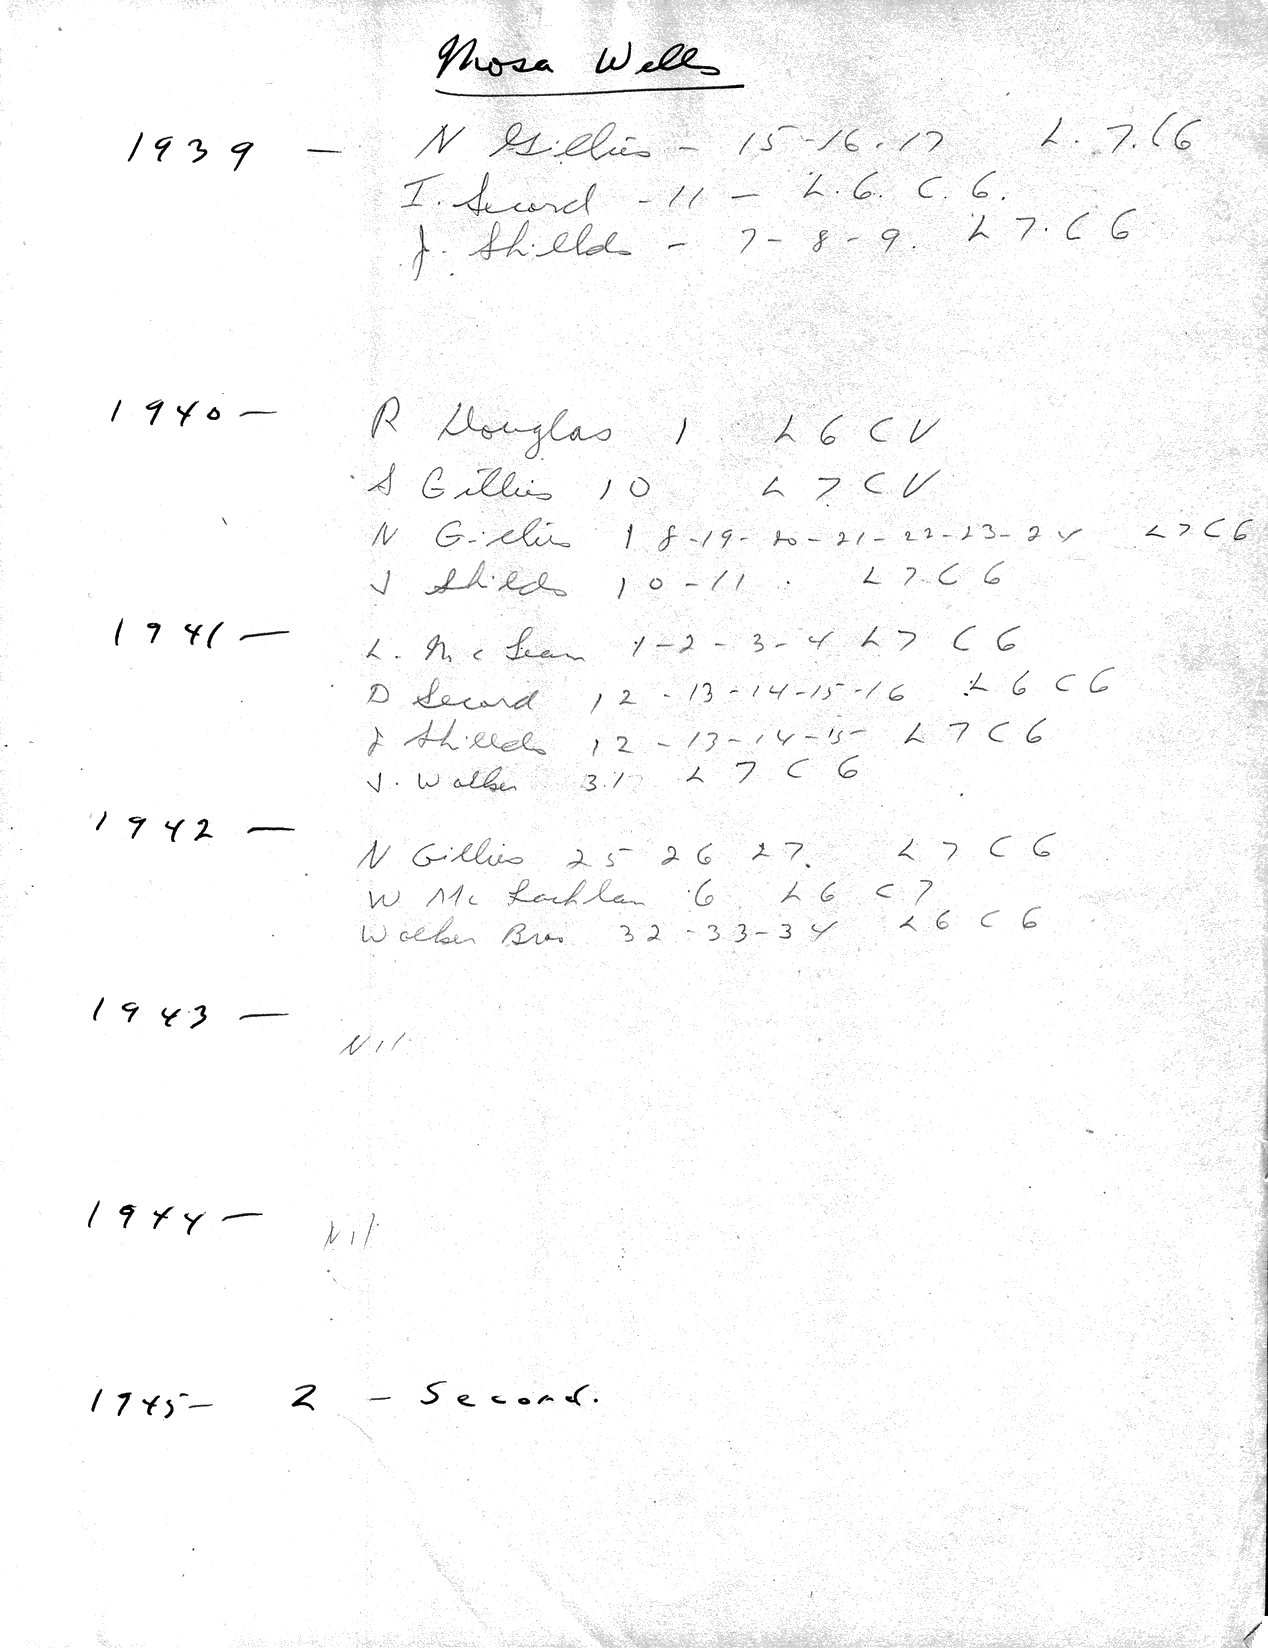 Mosa Wells
1939 — N Gillies - 15-16-17 L. 7. C6
I. Secord - 11 - L. 6. C. 6.
J. Shields - 7-8-9. L 7. C 6
1940 — R Douglas 1 L 6 C V
S Gillies 10 L 7 C V
N Gillies 18-19-20-21-22-23-24 L 7 C 6
J Shields 10-11 L 7 C 6
1941 — L. McLean 1-2-3-4 L 7 C 6
D Secord 12-13-14-15-16 L 6 C 6
J Shields 12-13-14-15- L 7 C 6
J. Walker 31 L 7 C 6
1942 — N Gillies 25 26 27. L 7 C 6
W McLachlan 6 L 6 C 7
Walker Bros 32-33-34 L 6 C 6
1943 — Nil
1944 — Nil
1945 — 2 - Secord.